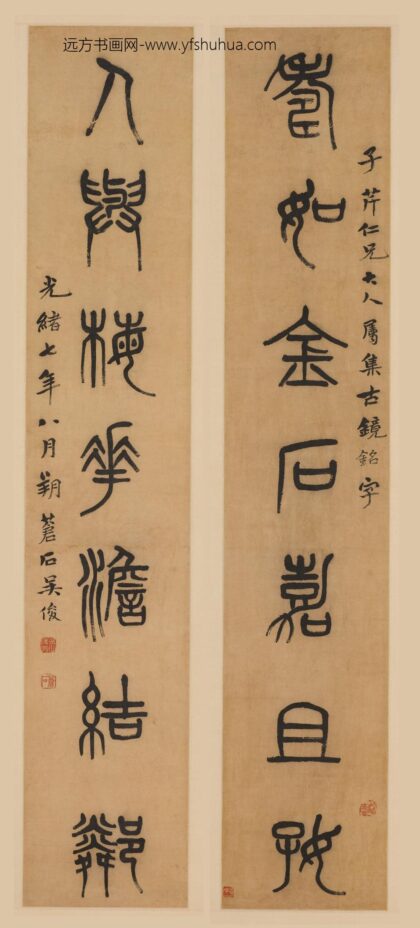 远方书画网-www.yfshuhua.com
子芹仁兄大人屬集古鏡銘字
壽如金石嘉且好
人與梅花澹結鄰
光緒七年八月朔蒼石吳俊